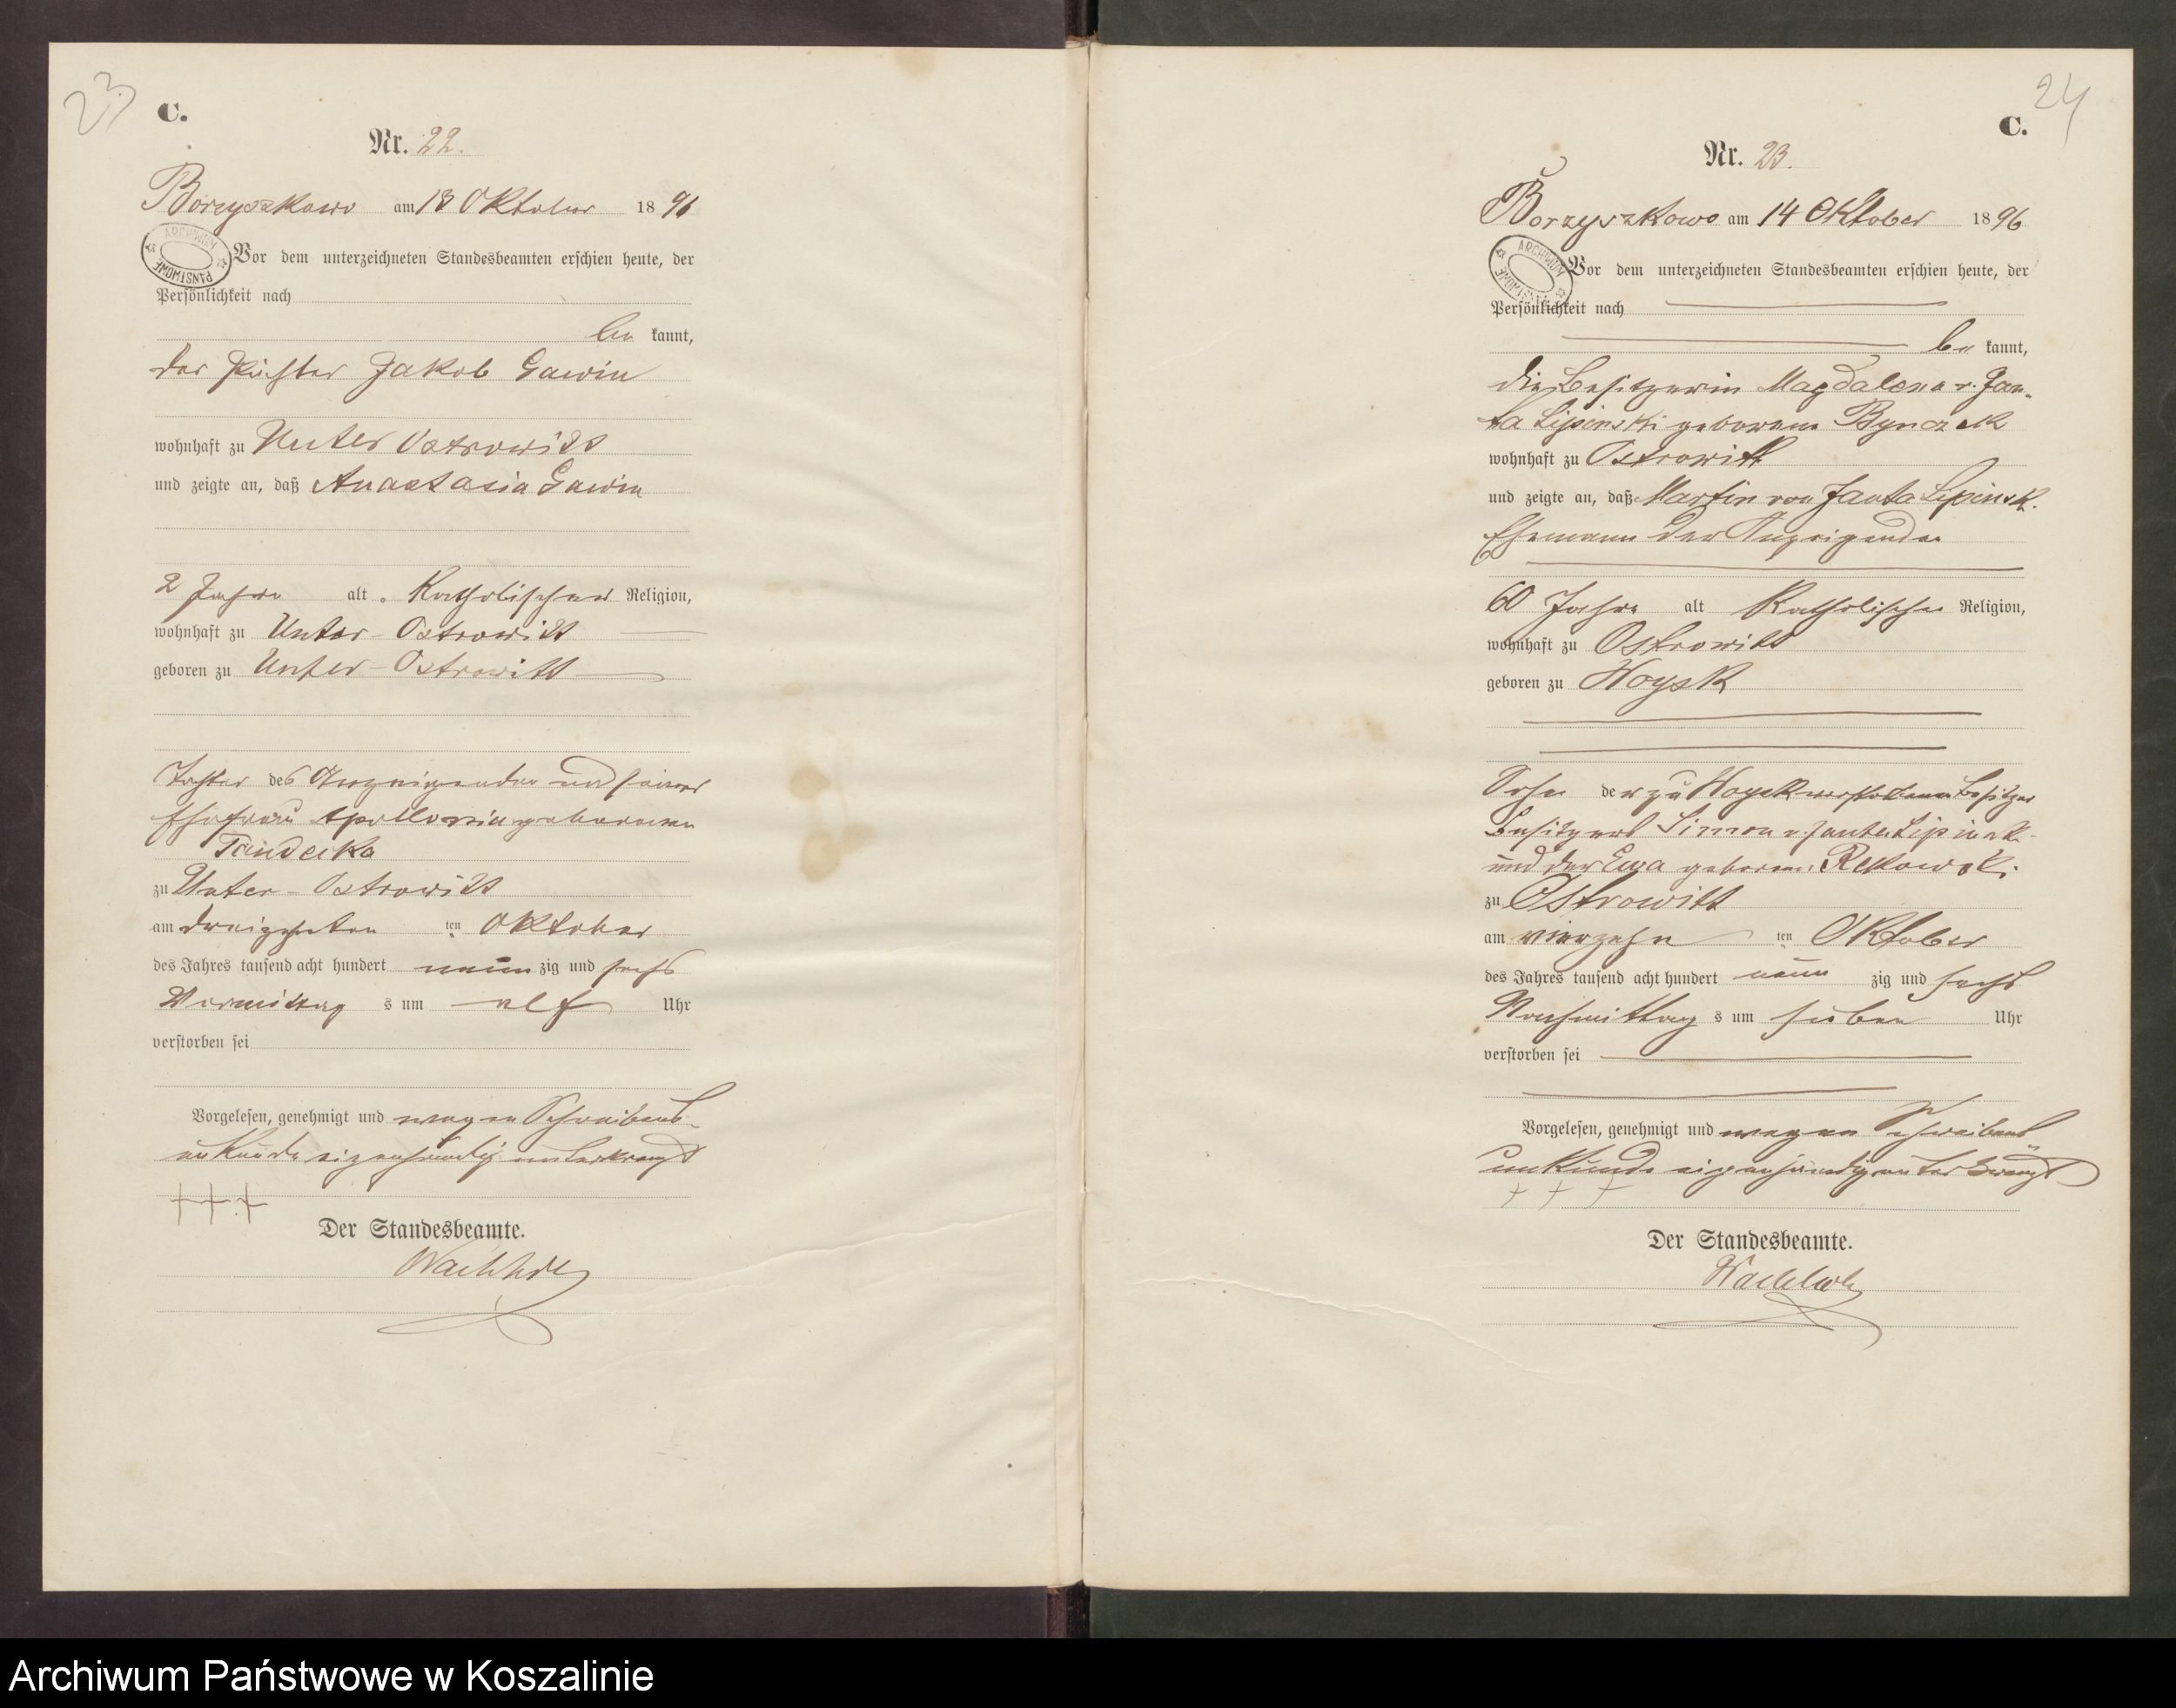 23
C.
Nr. 22.
Borzyszkowo am 13 Oktober 1896
ARCHIWUM PAŃSTWOWE
Vor dem unterzeichneten Standesbeamten erschien heute, der
Persönlichkeit nach
be kannt,
der Pächter Jakob Gawin
wohnhaft zu Unter Ostrowitt
und zeigte an, daß Anastasia Gawin
2 Jahre alt, Katholischer Religion,
wohnhaft zu Unter-Ostrowitt
geboren zu Unter-Ostrowitt
Tochter des Anzeigenden und seiner
Ehefrau Apollonia geborenen
zu Unter-Ostrowitt
am dreizehnten ten Oktober
des Jahres tausend acht hundert neun zig und sechs
Vormittag s um elf Uhr
verstorben sei
Vorgelesen, genehmigt und wegen Schreibens-
unkunde eigenhändig unterkreuzt
+++
Der Standesbeamte.
24
C.
Nr. 23.
Borzyszkowo am 14 Oktober 1896
ARCHIWUM PAŃSTWOWE
Vor dem unterzeichneten Standesbeamten erschien heute, der
Persönlichkeit nach
be kannt,
die Besitzerin Magdalena v. Jan-
ta Lipinski geborene
wohnhaft zu Ostrowitt
und zeigte an, daß Martin von Janta Lipinsk.
Ehemann der Anzeigenden
60 Jahre alt Katholischer Religion,
wohnhaft zu Ostrowitt
geboren zu Woysk
Sohn der zu Woysk verstorbenen Besitzer
Besitzers Simon v. Janta Lipinsk-
und der Ewa geborene Rekowski.
zu Ostrowitt
am vierzehn ten Oktober
des Jahres tausend acht hundert neun zig und sechs
Nachmittag s um sieben Uhr
verstorben sei
Vorgelesen, genehmigt und wegen Schreibens-
unkunde eigenhändig unterkreuzt
+ + +
Der Standesbeamte.
Archiwum Państwowe w Koszalinie